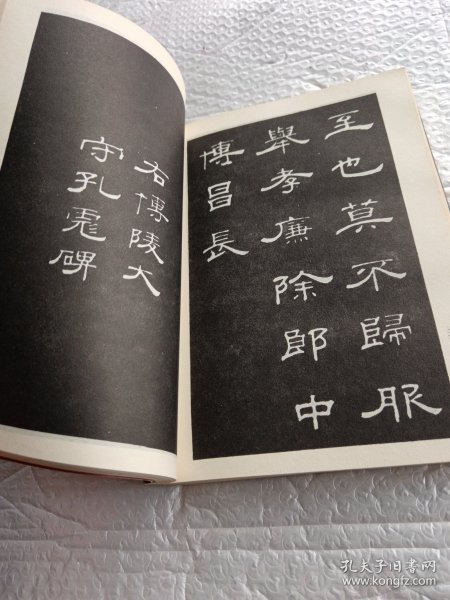 至也莫不歸服
舉孝廉除郎中
博昌長
右博陵大
守孔彪碑
孔夫子旧书网
www.kongfz.com